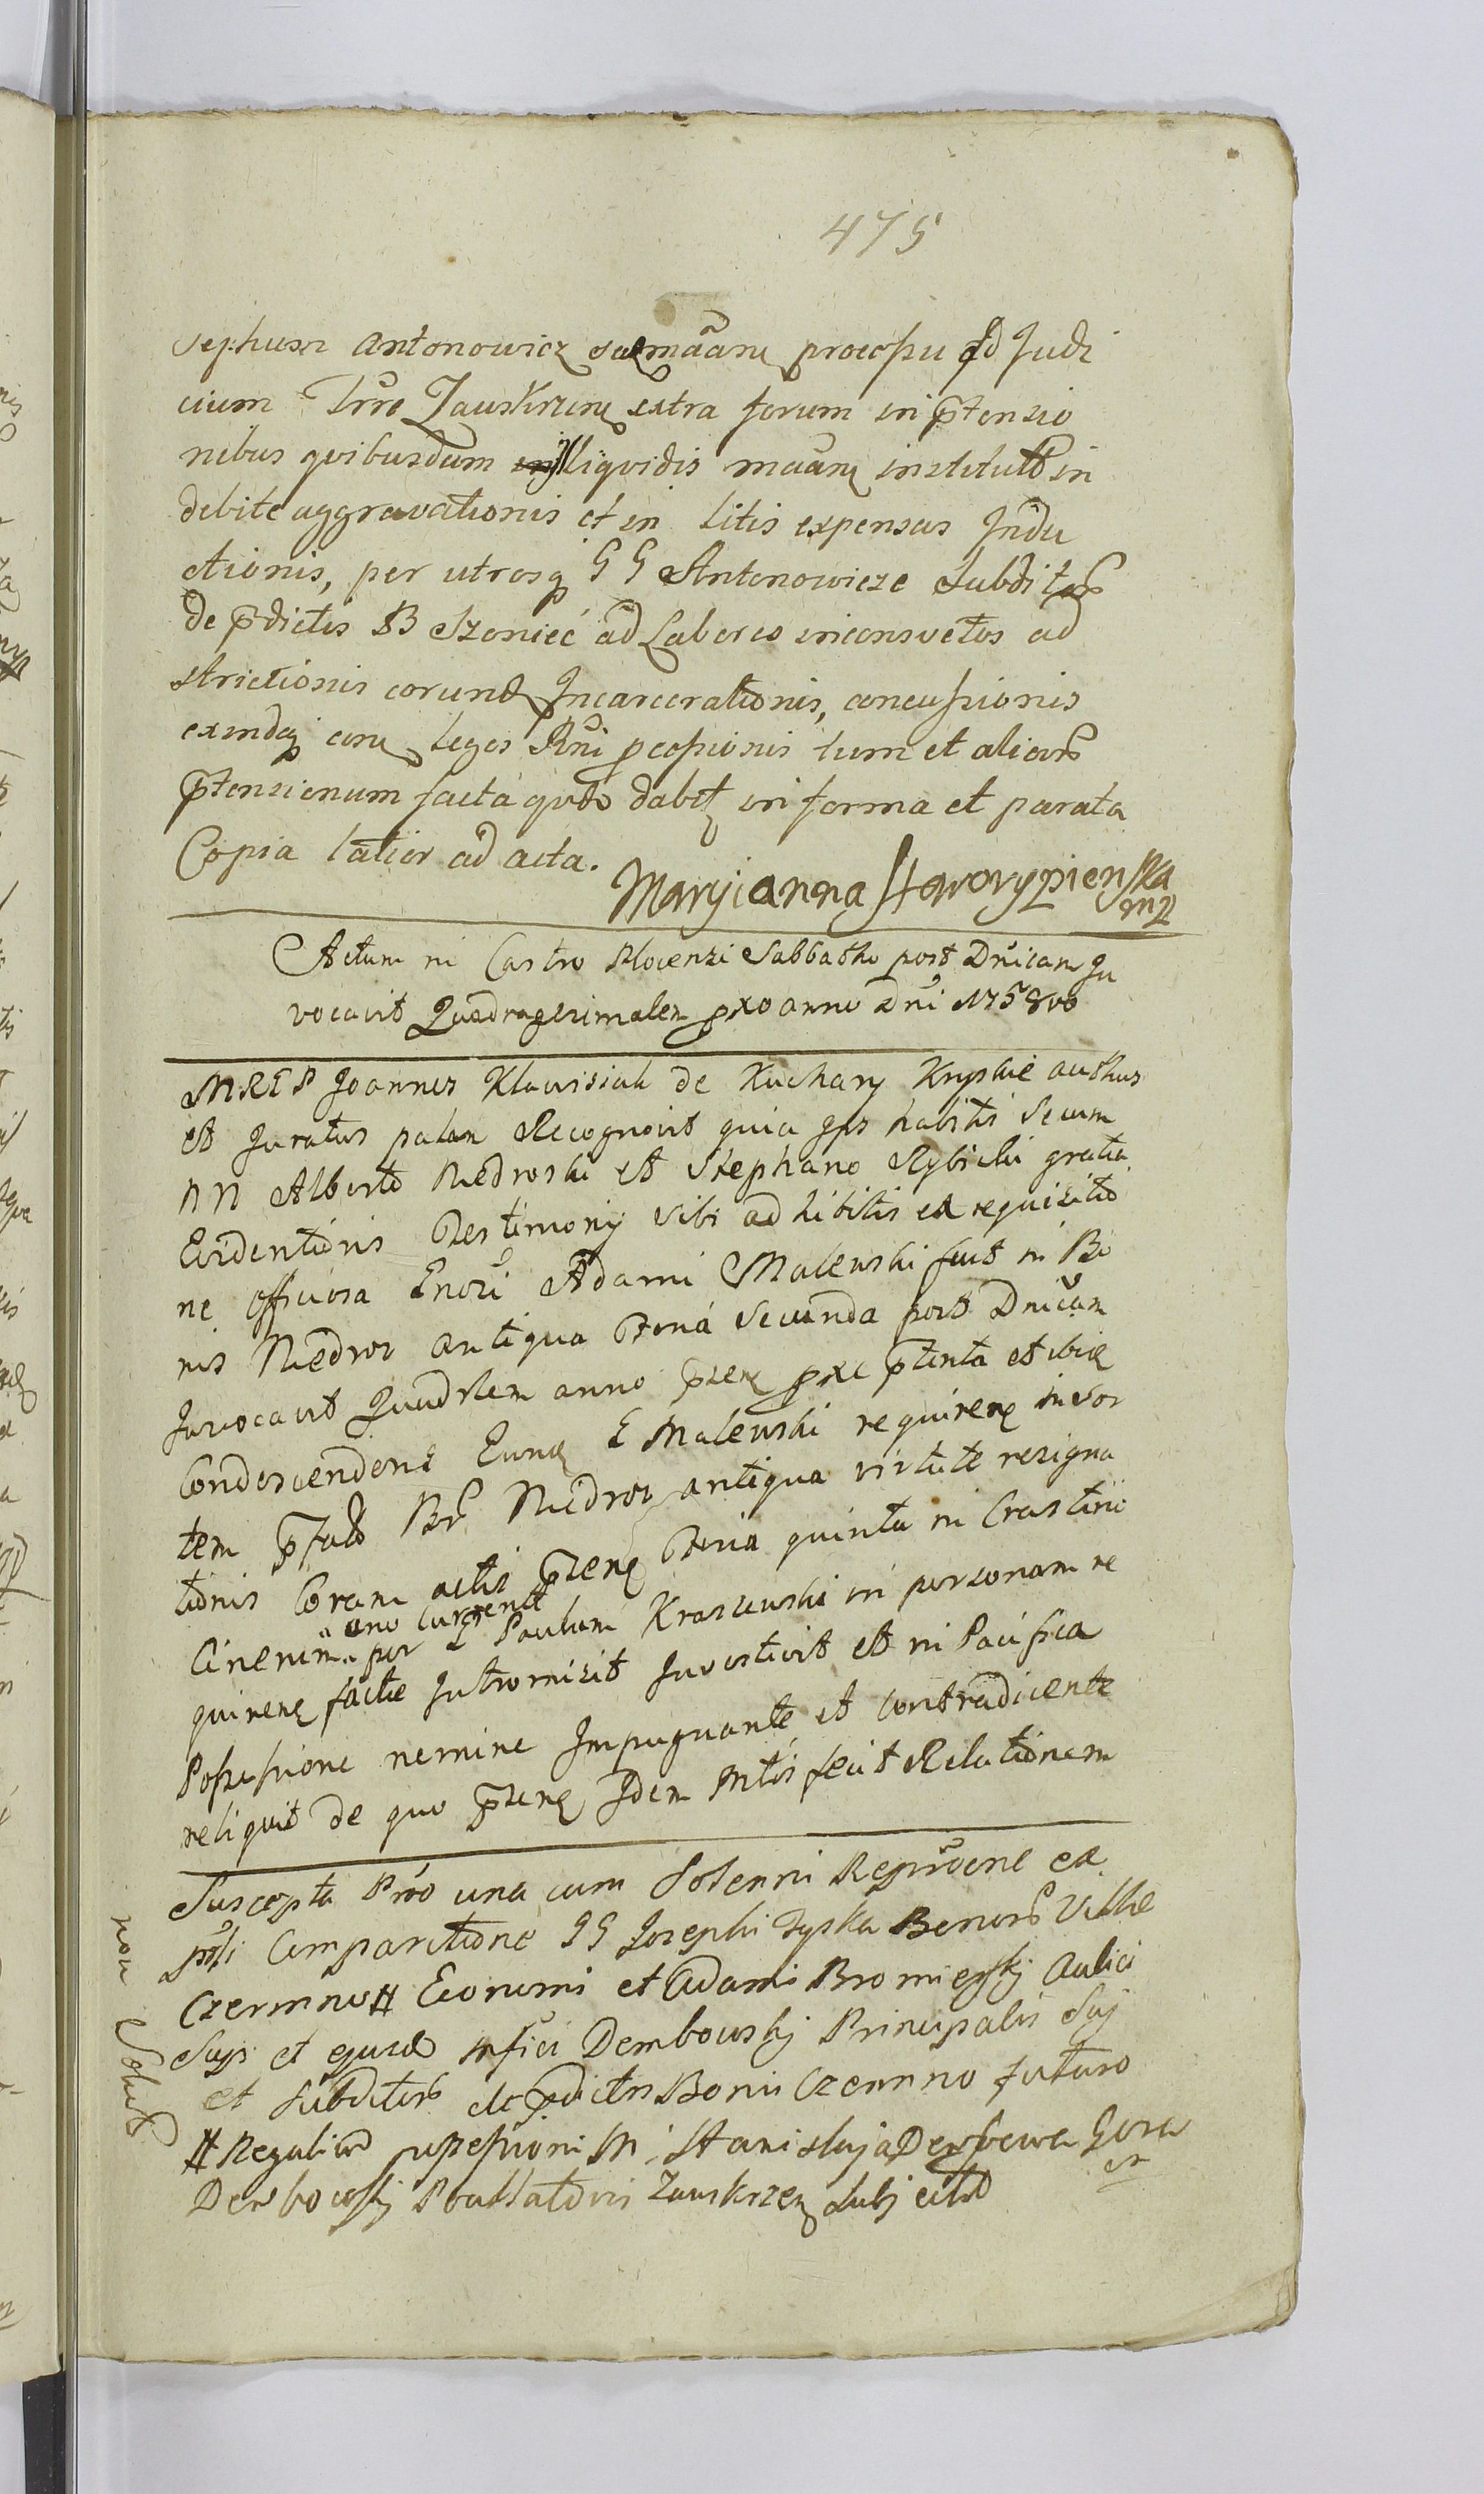 475
sephum Antonowicz processu ad Judi
cium Trre Zauskrzene extra forum in ptensio
nibus quibusdam illiquidis institut in
debite aggravationis et in litis expensas Indu
ctionis, per utrosq GG Antonowicze Subditor
de pdictis B Szeniec ad Labores inconsvetos ad
strictionis eorund Incarcerationis, concussionis
exindeq leges Rni pcessionis tum et aliar
ptensionum facta quo dabit in forma et parata
Copia latior ad acta.
Maryianna Staworypienska
mp
Actum in Castro Plocensi Sabbatho post Dnicam In
vocavit Quadragesimalem pxo anno Dni 1758vo
MRTP Joannes Klawisiak de Kuchary Kryskie authus
et Juratus palam Recognovit quia Ips habitis Secum
NN Alberto Niedroski et Stephano Rybicki gratia
Evidentioris Testimony Sibi ad hibitis ex requisitio
ne officiosa Gnosi Adami Malewski fuit in Bo
nis Niedroz antiqua Feria Secunda post Dnicam
Invocavit Quadrlem anno psen pxe ptenta et ibiq
Condescendens Eund G Malewski requiren in Sor
tem pfat Br Niedroz antiqua virtute resigna
tionis Coram actis psen Feria quinta in Crastino
Cinerum ano currente per G Paulum Kraszewski in personam re
quiren facte Intromisit Investivit et in Pacifica
Possessione nemine Impugnante et contradicente
reliquit de quo psens Idem Mtlis fecit Relationem
Suscepta Pro una cum Solenni ex
Comparitione GG Josephi Tyska Bonor Ville
Czermno # Econumi et Adami Bromierskj Aulici
Sui et ejusd Mfici Dembowskj Principalis Suj
et Subditor de pdictis Bonis Czermno futuro
# Regalium possessioni M Stanislaja Dembowa Gora
Dembowskj Zauskrzen Subject
non Solut